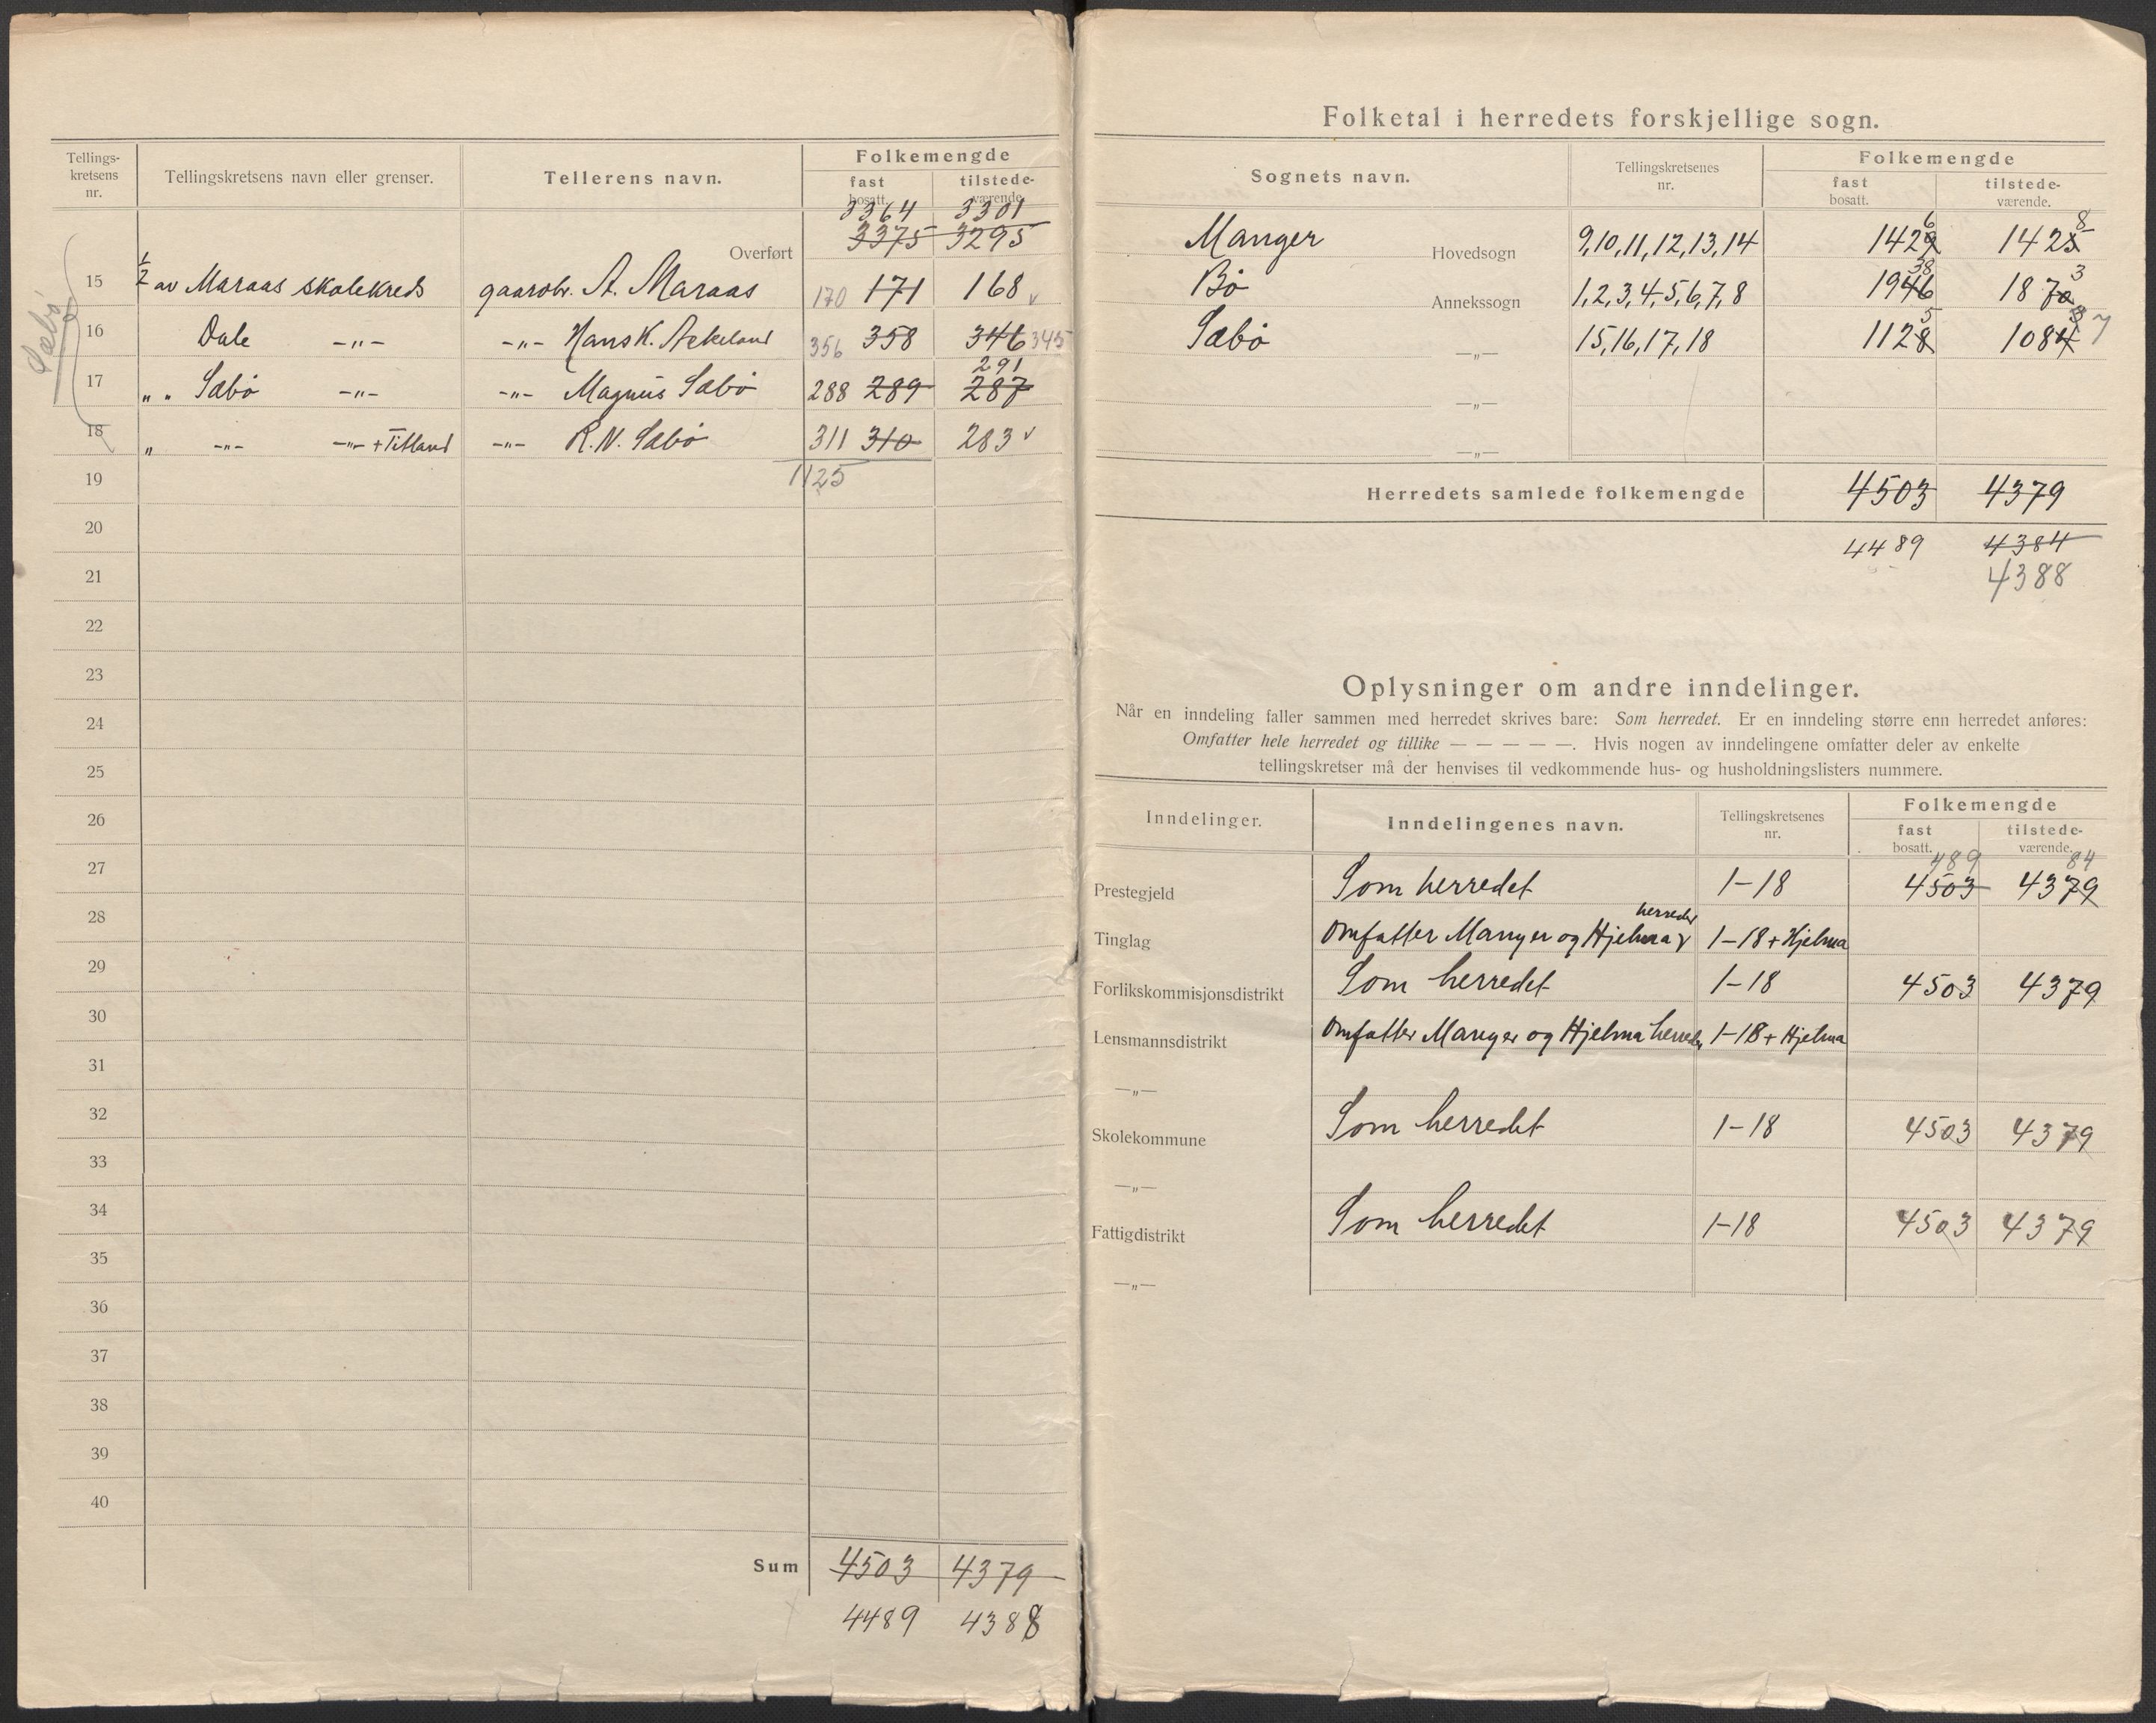 Tellings-
kretsens
nr.
Tellingskretsens navn eller grenser.
Tellerens navn.
Folkemengde
fast
bosatt.
tilstede-
værende.
3364 3301
Overført 3375 3295
Sæbø
15 1/2 av Maraas skolekreds gaardbr. A. Maraas 170 171 168 v
16 Dale —„— —„— Hans K. Askeland 356 358 346 345
291
17 „ „ Sæbø —„— —„— Magnus Sæbø 288 289 287
18 „ —„— —„— + Titland —„— R. N. Sæbø 311 310 283 v
1125
19
20
21
22
23
24
25
26
27
28
29
30
31
32
33
34
35
36
37
38
39
40
Sum 4503 4379
4489 4388
Folketal i herredets forskjellige sogn.
Sognets navn.
Tellingskretsenes
nr.
Folkemengde
fast
bosatt.
tilstede-
værende.
6 8
Manger Hovedsogn 9,10,11,12,13,14 1429 1425
38 3
Bø Annekssogn 1,2,3,4,5,6,7,8 1946 1870
5
Sæbø —„— 15,16,17,18 1128 1084 7
—„—
—„—
Herredets samlede folkemengde 4503 4379
4489 4384
4388
Oplysninger om andre inndelinger.
Når en inndeling faller sammen med herredet skrives bare: Som herredet. Er en inndeling større enn herredet anføres:
Omfatter hele herredet og tillike — — — — —. Hvis nogen av inndelingene omfatter deler av enkelte
tellingskretser må der henvises til vedkommende hus- og husholdningslisters nummere.
Inndelinger.
Inndelingenes navn.
Tellingskretsenes
nr.
Folkemengde
fast
bosatt.
tilstede-
værende.
489 84
Prestegjeld Som herredet 1-18 4503 4379
herreder
Tinglag Omfatter Manger og Hjelma 1-18 + Hjelma
Forlikskommisjonsdistrikt Som herredet 1-18 4503 4379
Lensmannsdistrikt Omfatter Manger og Hjelma herreder 1-18 + Hjelma
—„—
Skolekommune Som herredet 1-18 4503 4379
—„—
Fattigdistrikt Som herredet 1-18 4503 4379
—„—